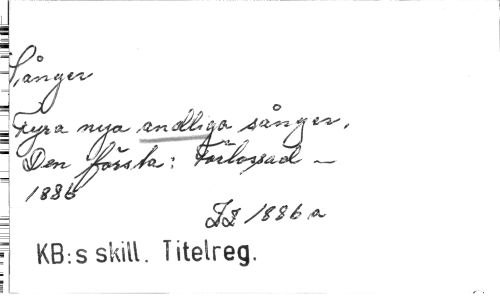 Sånger
Fyra nya andliga sånger.
Den första: Förlossad —
1886
1886 a
KB:s skill. Titelreg.